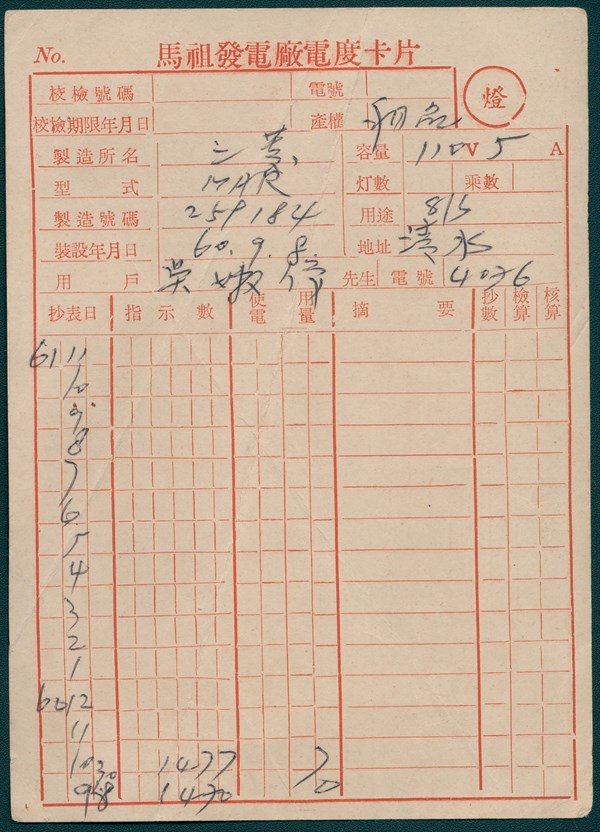 No. 馬祖發電廠電度卡片
校檢號碼 電號
燈
校檢期限年月日 產權 私
製造所名 三菱 容量 110V 5 A
型式 灯數 乘數
製造號碼 259184 用途
裝設年月日 60.9.8. 地址 清水
用戶 吳 先生 電號 4026
抄表日 指示數 使電用量 摘要 抄數 檢算 核算
61 11
10
9
8
7
6
5
4
3
2
1
60 12
11
10 30 1477 7
9 8 1470 0